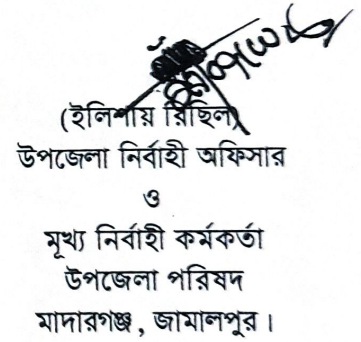 (ইলিশায় রিছিল)
উপজেলা নির্বাহী অফিসার
ও
মূখ্য নির্বাহী কর্মকর্তা
উপজেলা পরিষদ
মাদারগঞ্জ, জামালপুর।